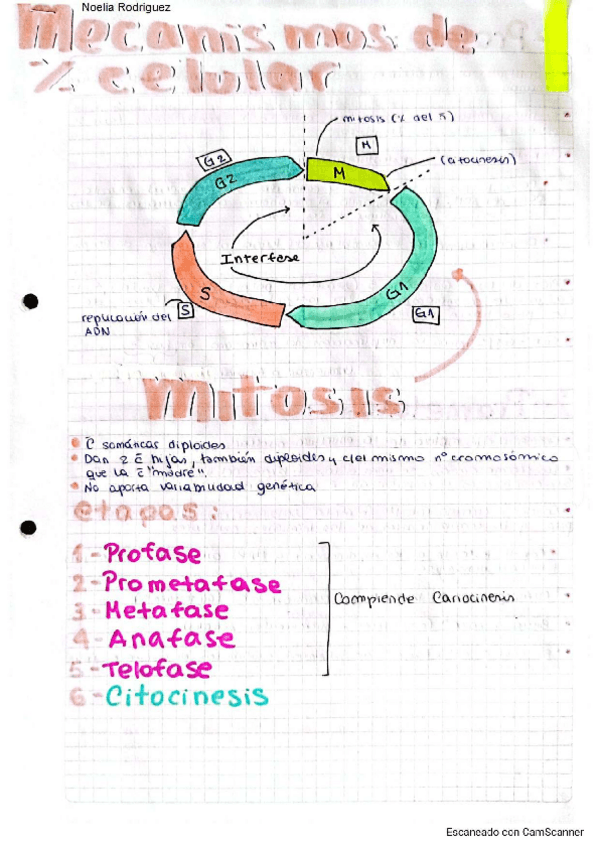 Noelia Rodriguez
Mecanismos de
% celular
mitosis (% del 5)
M
M
(citocinesis)
G2
G2
Interfase
S
S
G1
G1
replicación del
ADN
Mitosis
• C̄ somáticas diploides
• Dan 2 c̄ hijas, también diploides y del mismo nº cromosómico
que la c̄ "madre".
• No aporta variabilidad genética
etapas:
1 - Profase
2 - Prometafase
3 - Metafase
4 - Anafase
5 - Telofase
6 - Citocinesis
Compiende Cariocinesis
Escaneado con CamScanner